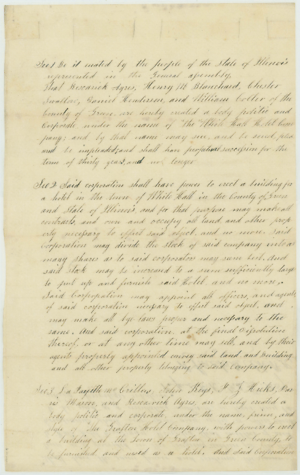 Sec 1 Be it enacted by the people of the State of Illinois
represented in the General Assembly,
That Hezekiah Ayres, Henry M Blanchard, Chester
Daniel Henderson, and William Collier of the
county of Greene, are hereby created a body politic and
corporate under the name of "The White Hall Hotel Com-
pany, and by that name may sue, and be sued, plea
and be impleaded, and shall have perpetual succession for the
term of thirty years, and no longer
Sec 2 Said corporation shall have power to erect a building for
a hotel in the town of White Hall in the county of Greene
and State of Illinois and for that purpose may purchase
and own and occupy all land and other prop
erty necessary to effect said object, and no more. Said
corporation may divide the stock of said company into as
many shares as to said corporation may seem best. And
said stock may be increased to a sum sufficiently large
to put up and furnish said Hotel and no more.
Said Corporation may appoint all officers, and agents
of said corporation necessary to effect said object, and
may make all by laws proper and necessary to the
same. And said corporation, at the final expiration
thereof, or at any other time may sell, and by their
agents properly appointed convey said land and building
and all other property belonging to said company.
Sec 3 La Fayette Mc Crillis, Hicks,
and Hezekiah Ayres, are hereby created a
body politic and corporate, under the name, and
style of The Grafton Hotel Company, with power to erect
a building at the town of Grafton, in County, to
be furnished and used as a hotel. And said Corporation